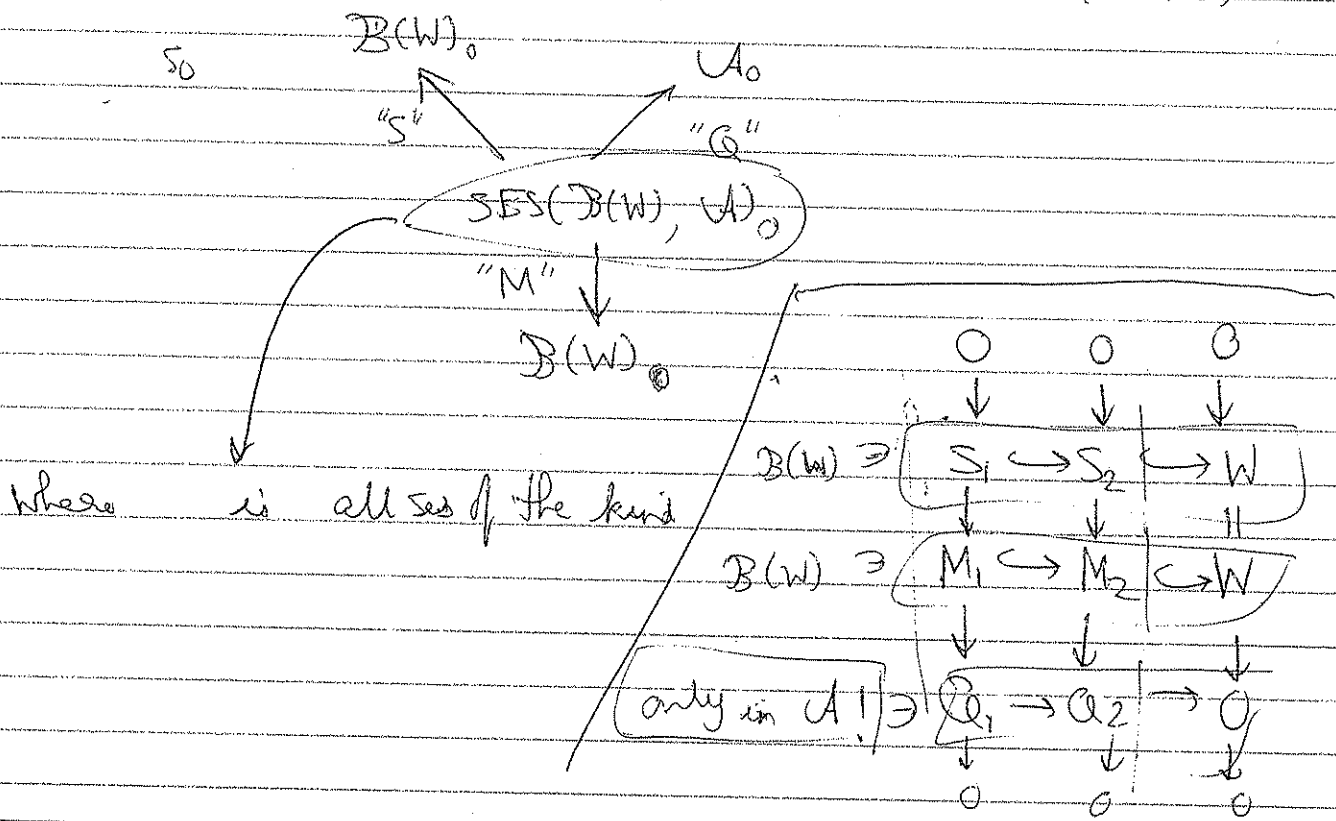 So
B(W)₀
A₀
"S"
"Q"
SES(B(W), A)₀
"M"
B(W)₀
where is all ses of the kind
0 0 0
↓ ↓ ↓
B(W) ∋ S₁ ↪ S₂ ↪ W
↓ ↓ ||
B(W) ∋ M₁ ↪ M₂ ↪ W
↓ ↓ ↓
only in A! ∋ Q₁ → Q₂ → 0
↓ ↓ ↓
0 0 0